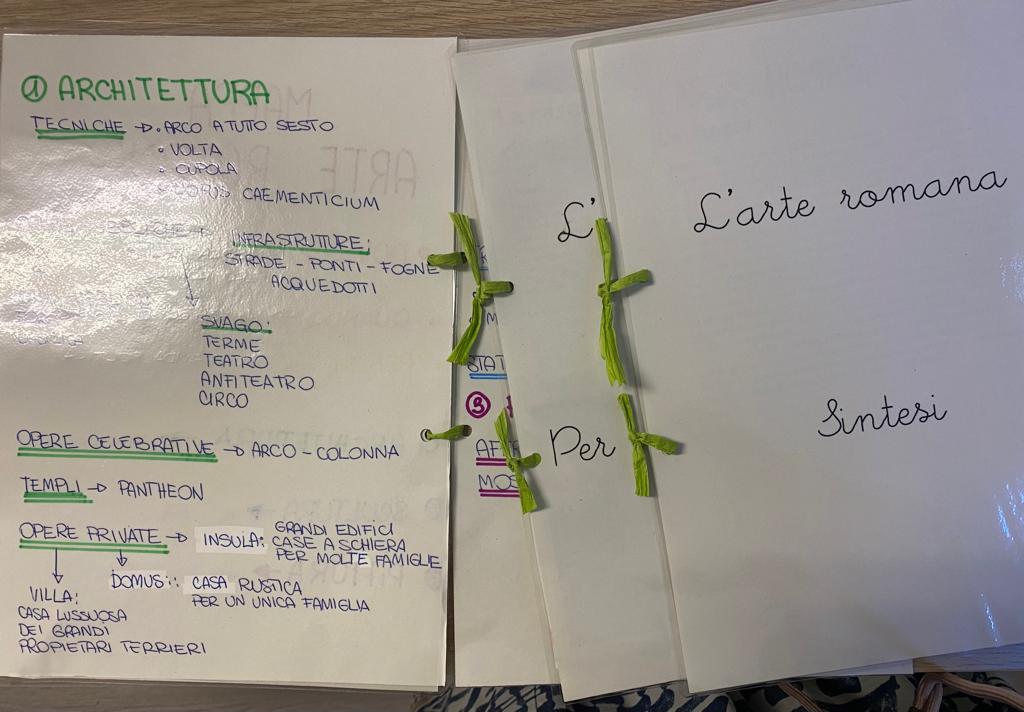 ① ARCHITETTURA
TECNICHE → • ARCO A TUTTO SESTO
• VOLTA
• CUPOLA
CAEMENTICIUM
INFRASTRUTTURE:
STRADE - PONTI - FOGNE
ACQUEDOTTI
SVAGO:
TERME
TEATRO
ANFITEATRO
CIRCO
OPERE CELEBRATIVE → ARCO - COLONNA
TEMPLI → PANTHEON
OPERE PRIVATE → INSULA: GRANDI EDIFICI
CASE A SCHIERA
PER MOLTE FAMIGLIE
DOMUS:: CASA RUSTICA
PER UN UNICA FAMIGLIA
VILLA:
CASA LUSSUOSA
DEI GRANDI
PROPIETARI TERRIERI
STAT
③
AFF
MOS
L'
Per
L'arte romana
Sintesi